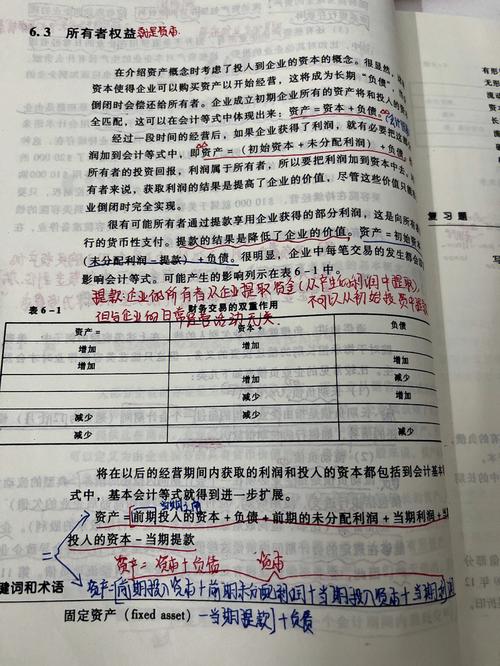 6.3 所有者权益 就是资本
在介绍资产概念时考虑了投入到企业的资本的概念。很显然,
资本使得企业可以购买资产以开始经营,这将成为长期“负债”
倒闭时会偿还给所有者。企业成立初期企业所有的资产将和投入的
全匹配,这可以在会计等式中体现出来:资产=资本+负债。
经过一段时间的经营后,如果企业获得了利润,就有必要把这
润加到会计等式中,即资产=(初始资本+未分配利润)+负债。
者的投资回报,利润属于所有者,所以要把利润加到资本中去。
有者来说,获取利润的结果是提高了企业的价值,尽管这些价值只
业倒闭时完全实现。
很有可能所有者通过提款享用企业获得的部分利润,这是向所有
行的货币性支付。提款的结果是降低了企业的价值。资产=初始资本
(未分配利润-提款)+负债。很明显,企业中每笔交易的发生都会
影响会计等式。可能产生的影响列示在表6-1中。
提款:企业的所有者从企业提取资金(从产生的利润中提取),
不可以从初始投资中提取
但与企业的日常经营活动无关.
表6-1 财务交易的双重作用
资产= 资本+ 负债
增加 增加
增加 增加
增加 减少
减少 增加
减少 减少
减少 减少
复习题
将在以后的经营期间内获取的利润和投入的资本都包括到会计基本
式中,基本会计等式就得到进一步扩展。
资产=前期投入的资本+负债+前期的未分配利润+当期利润+当
投入的资本-当期提款
资产=资本+负债 资本
键词和术语
资产=[前期投入资本+前期未分配利润+当期投入资本+当期利润
-当期提款]+负债
固定资产(fixed asset)